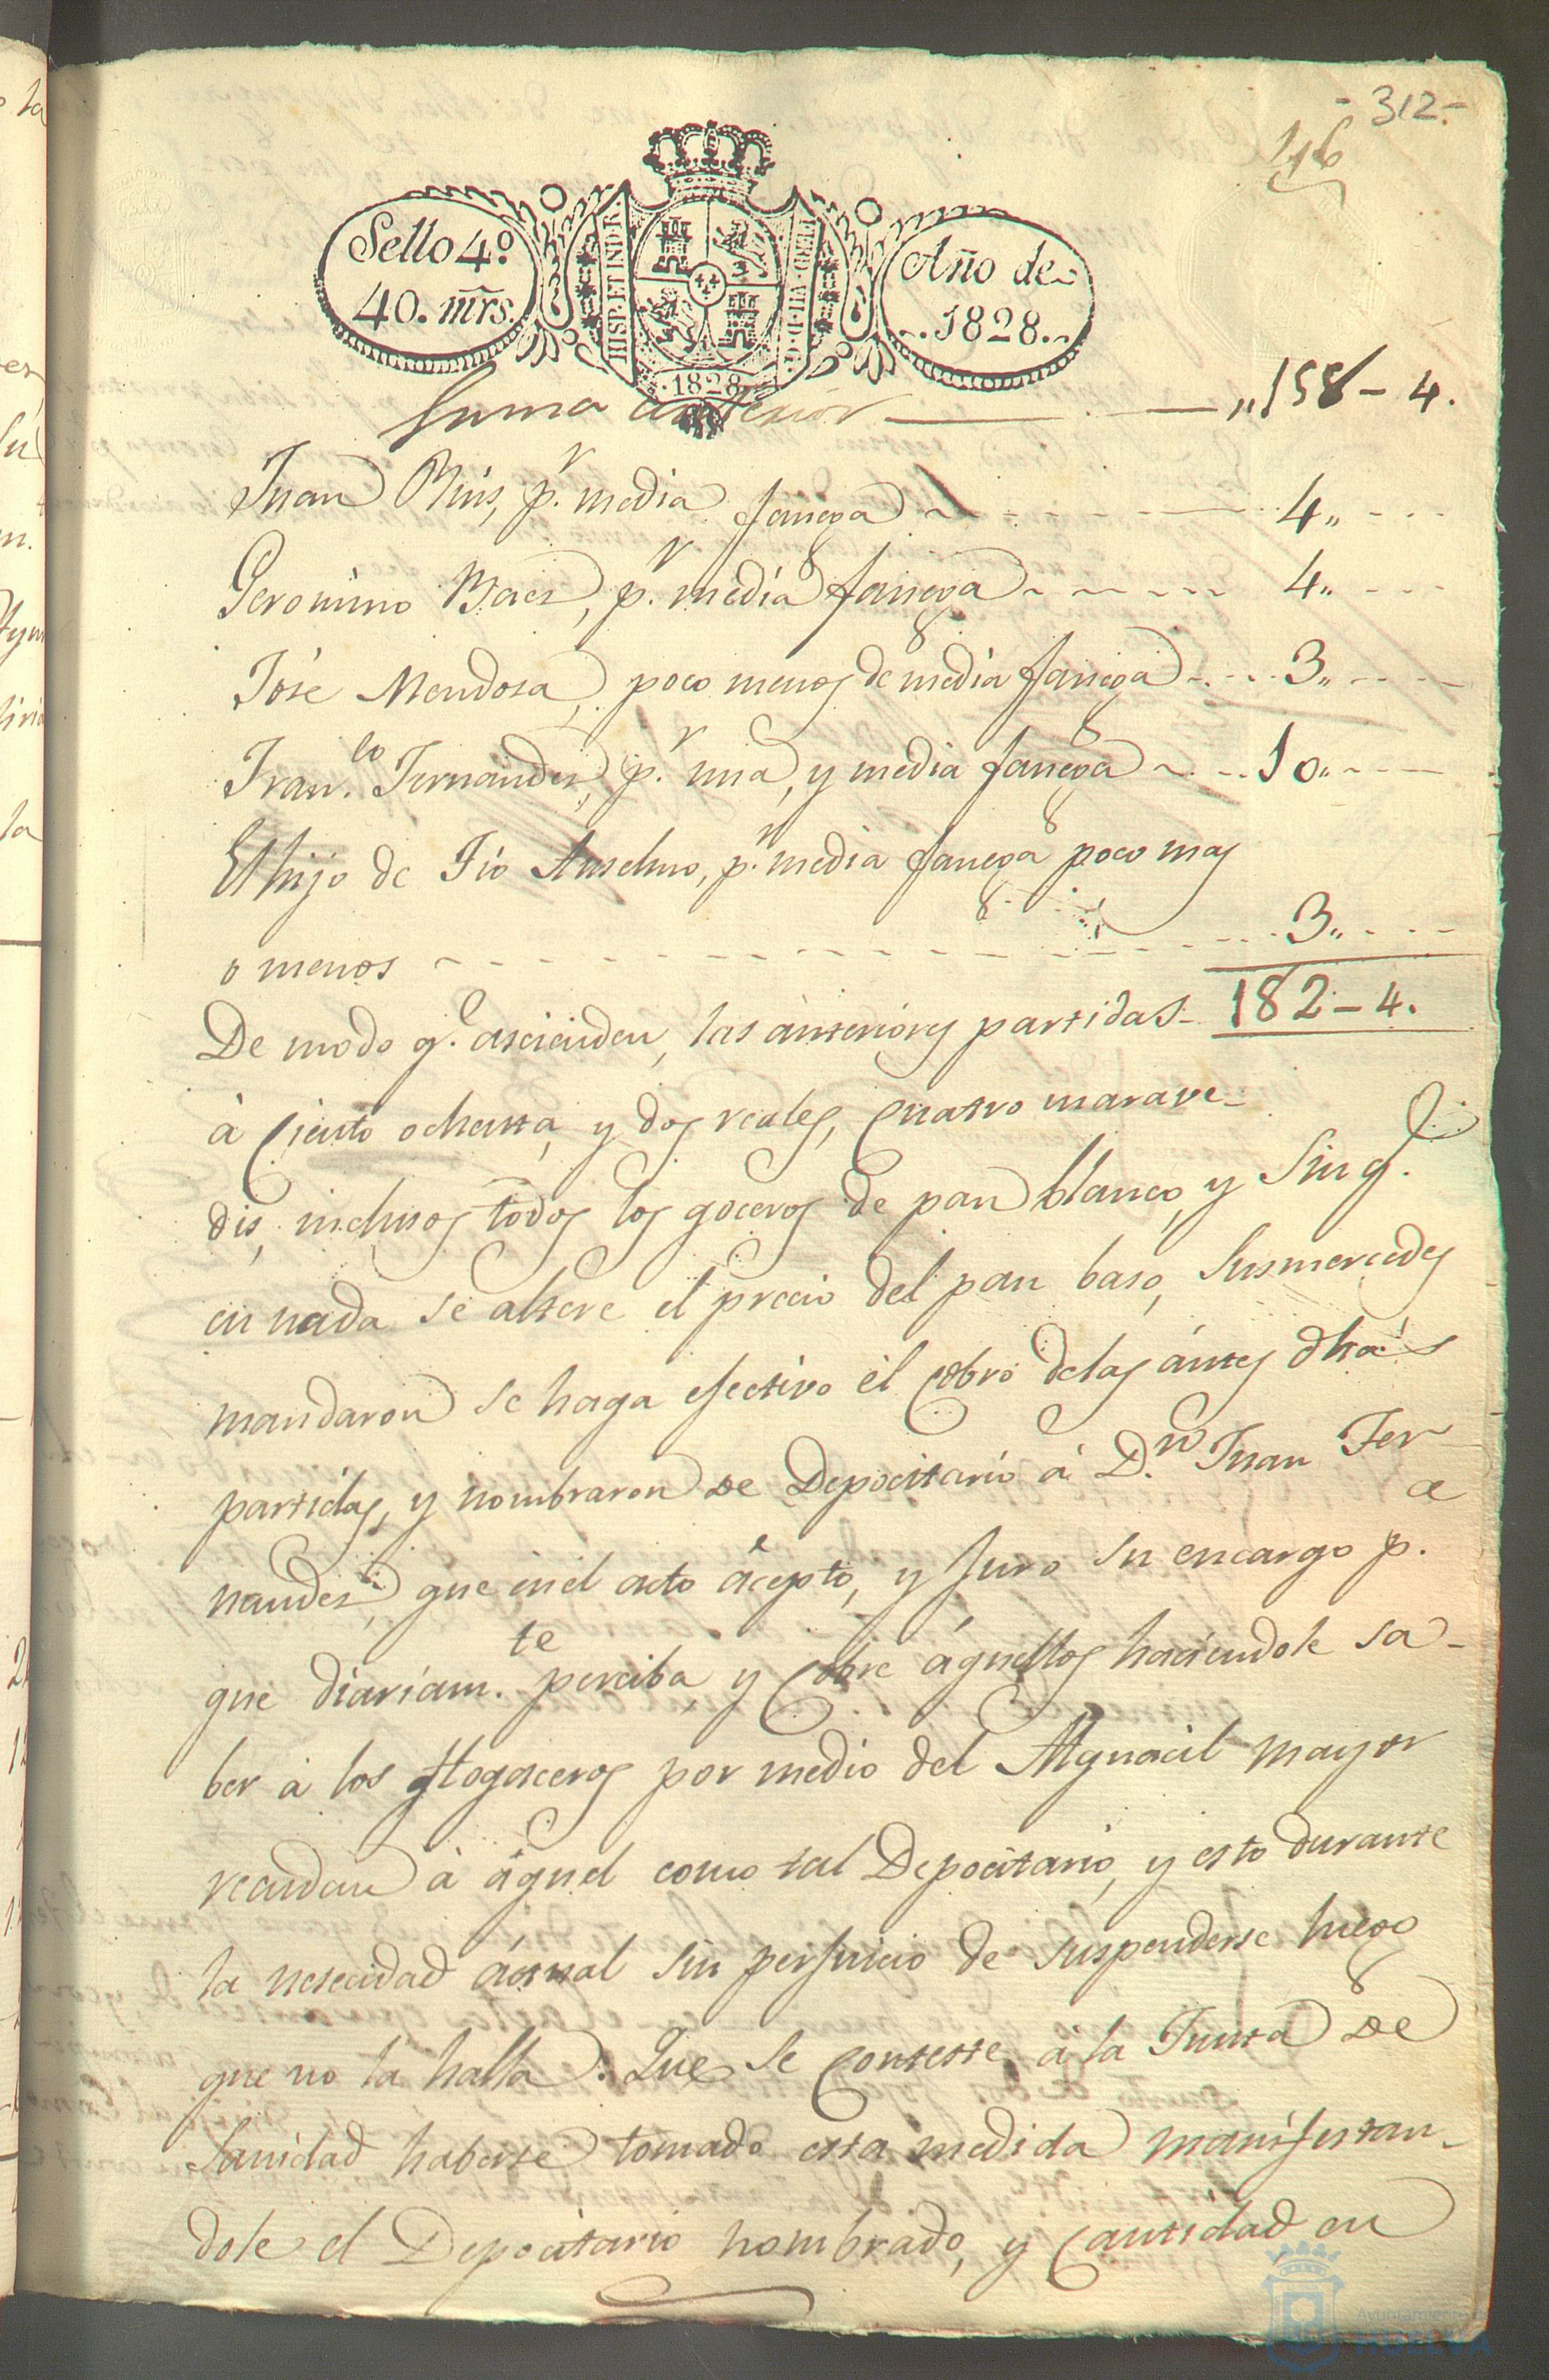 - 312 -
116
Sello 4º
40. mrs.
HISP. ET IND. R.
FERD. VII. D. G.
Año de
1828.
1828
Suma anterior „158 - 4.
Juan Ruis, p.r media fanega 4„
Geronimo Baes, p.r media fanega 4„
Jóse Mendosa, poco menos de media fanega 3„
Fran.co Fernandes, p.r una, y media fanega 10„
El hijo de Tio Anselmo, p.r media fanega poco mas
o menos 3„
De modo q.e ascienden, las anteriores partidas 182 - 4.
à Ciento ochenta, y dos reales, Cuatro marave-
dis, inclusos todos los goceros de pan blanco, y sin q.e
en nada se altere el precio del pan baso, Susmercedes
mandaron se haga efectivo él Cobro delas ántes dhas
partidas, y nombraron de Depocitario á D.n Juan Fer
nandes, que enel acto ácepto, y Juro su encargo p.a
que diariam.te perciba, y Cobre áquellos haciendole sa-
ber à los Hogaceros por medio del Alguacil mayor
recudan à áquel como tal Depocitario, y esto durante
la nesecidad áctual sin perJuicio de suspenderse luego
que no la halla. Que se Conteste à la Junta de
Sanidad haberse tomado esta medida manifestan-
dole el Depocitario nombrado, y Cantidad en
Ayuntamiento de
HUELVA